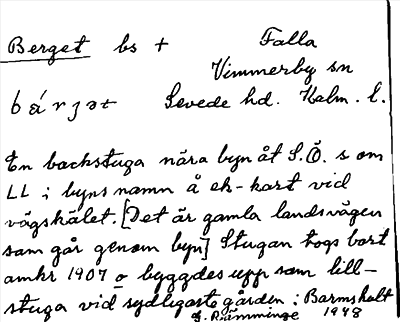 Berget bs + Falla
Vimmerby sn
bárjət Sevede hd. Kalm. l.
En backstuga nära byn åt S.Ö. som
LL i byns namn å ek-kart vid
vägskälet. [Det är gamla landsvägen
som går genom byn] Stugan togs bort
omkr 1907 o byggdes upp som lill-
stuga vid sydligaste gården: Barmshult
S. Rämminge 1948